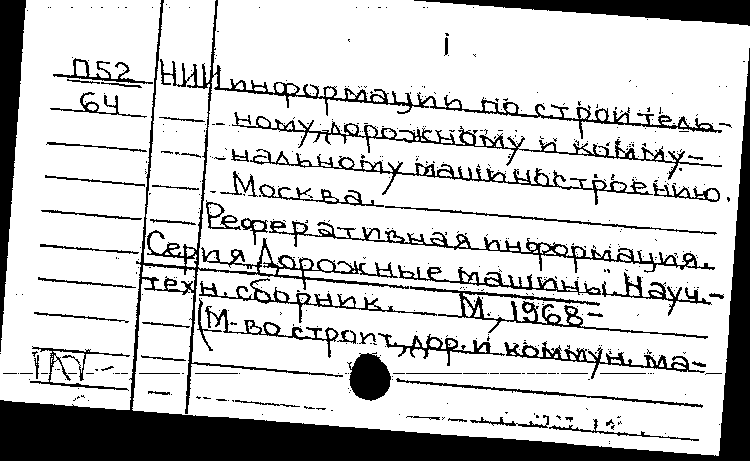 i
П52
64
НИИ информации по строитель-
ному, дорожному и комму-
нальному машиностроению.
Москва.
Реферативная информация.
Серия "Дорожные машины". Науч.-
техн. сборник. М., 1968-
(М-во строит., дор. и коммун. ма-